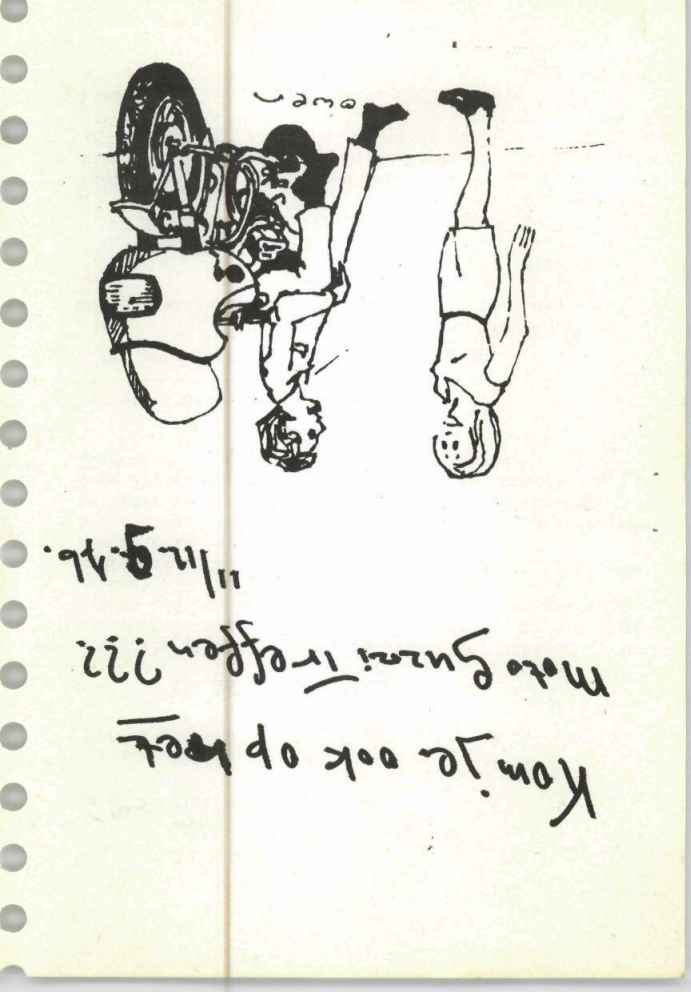 Kom je ook op het
Moto Guzzi Treffen ???
11/12-9-76.